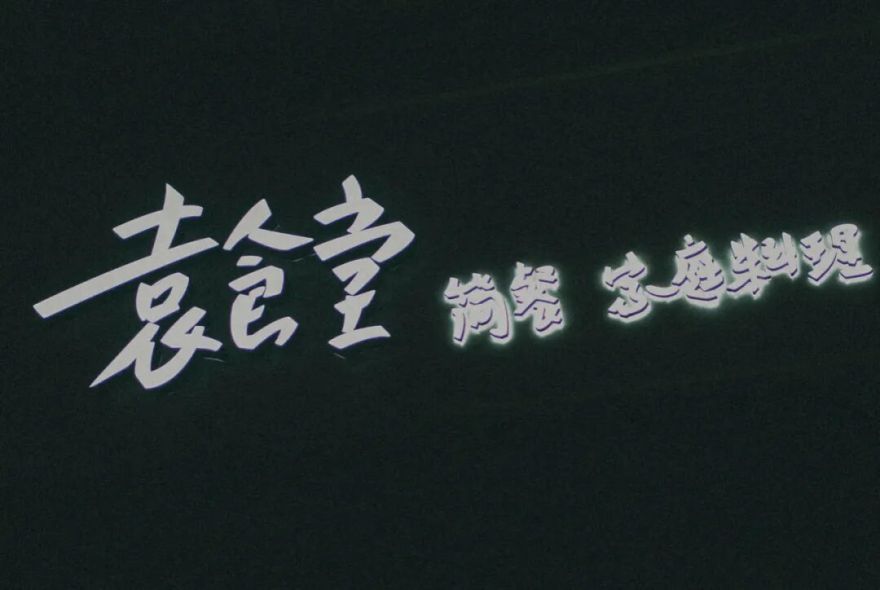 袁食堂 简餐 家庭料理